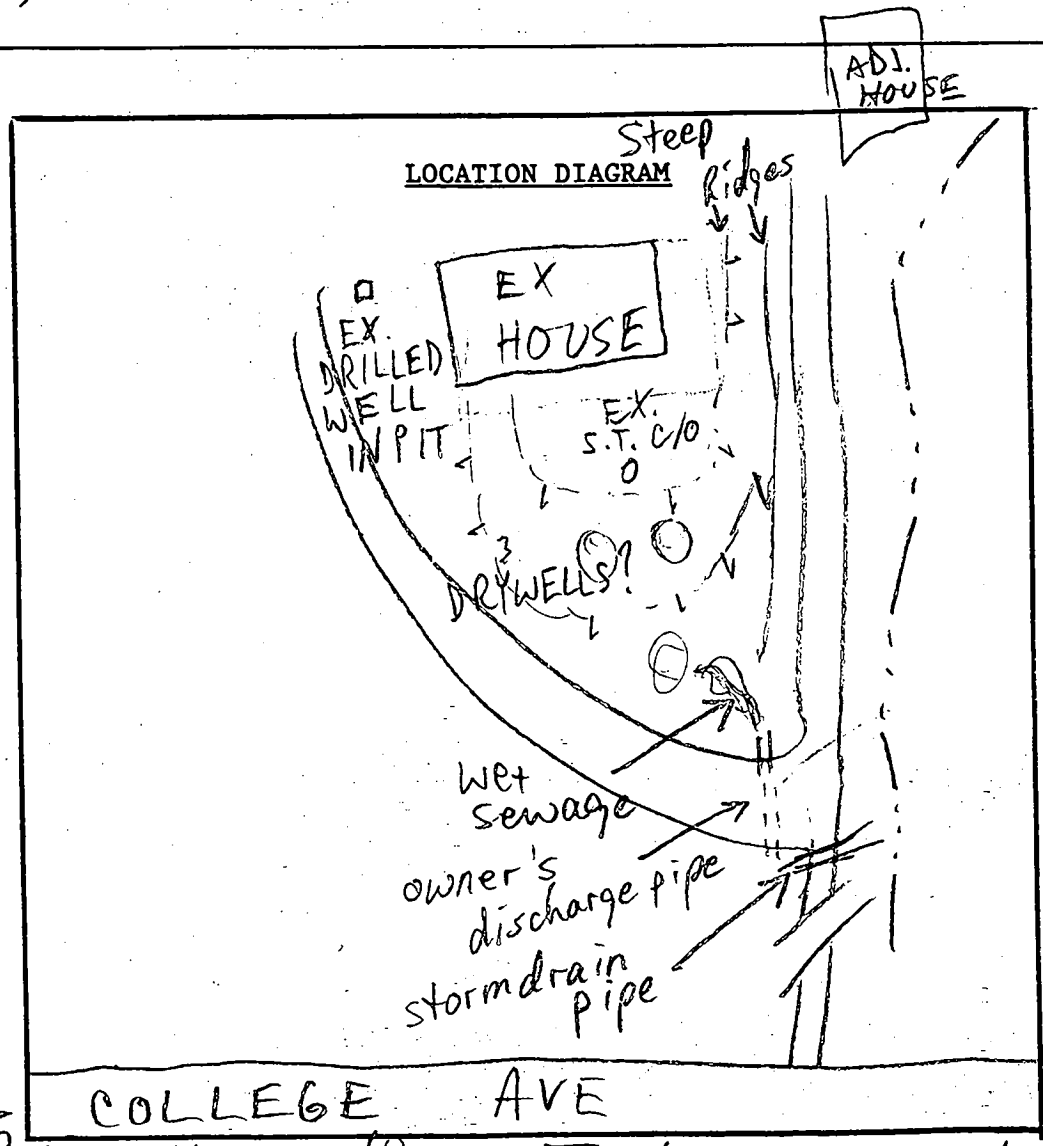 ADJ.
HOUSE
Steep
Ridges
LOCATION DIAGRAM
EX
HOUSE
EX.
DRILLED
WELL
IN PIT
EX.
S.T. C/O
3
DRYWELLS?
wet
sewage
owner's
discharge pipe
stormdrain
pipe
COLLEGE AVE